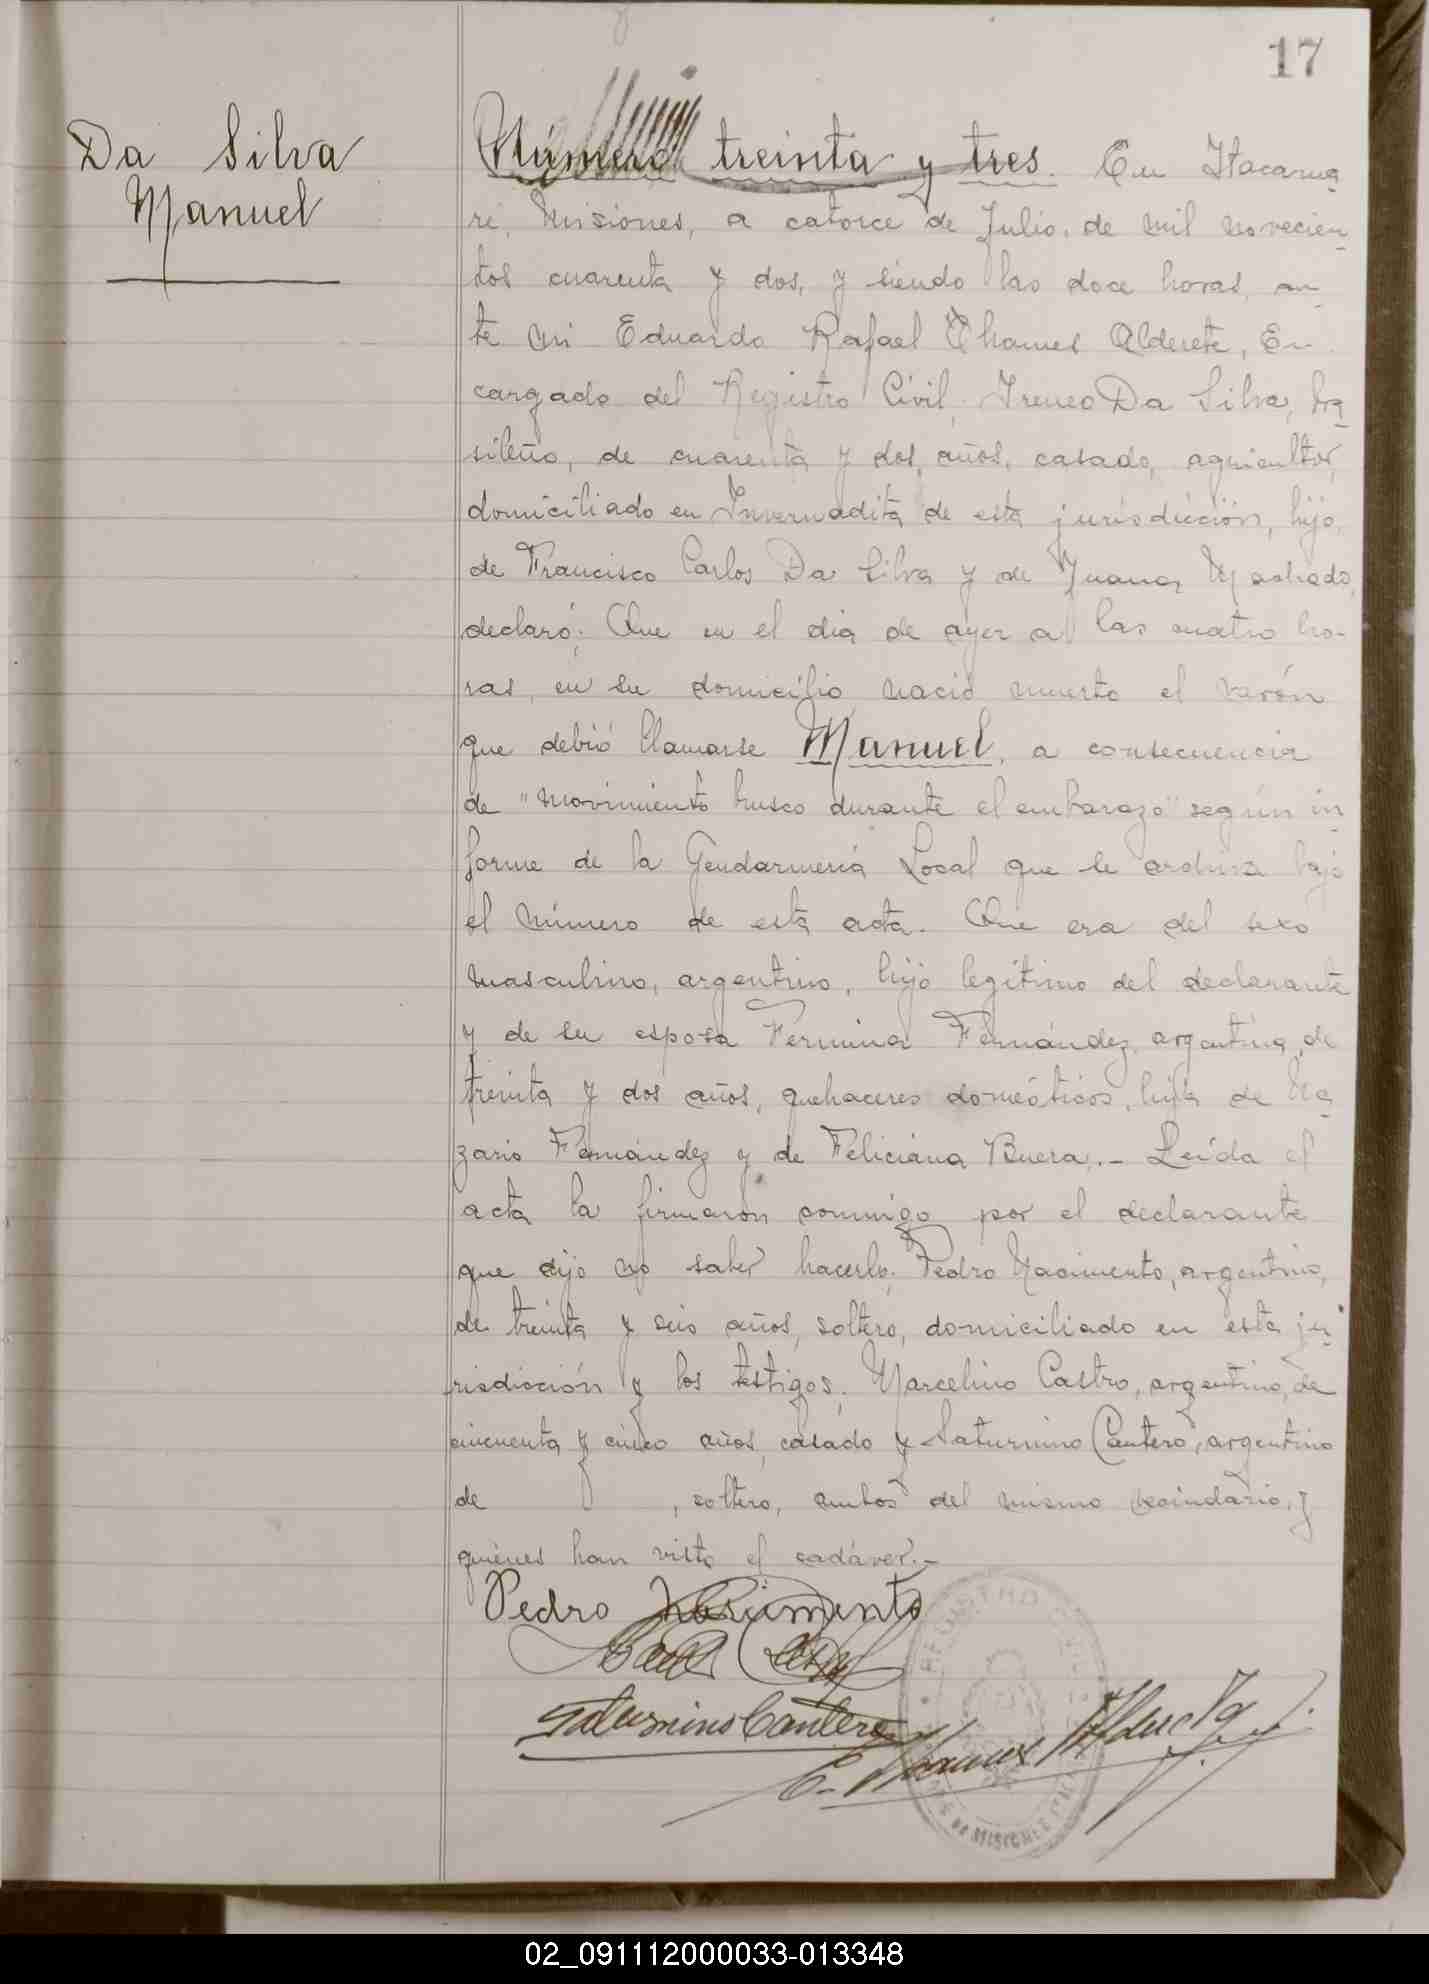 17
Da Silva
Manuel
Número treinta y tres. En Itacarua
ré, Misiones, a catorce de Julio, de mil novecien
tos cuarenta y dos, y siendo las doce horas, an
te mi Eduardo Rafael Thames Alderete, En
cargado del Registro Civil, Ireneo Da Silva, bra
sileño, de cuarenta y dos, años, casado, agricultor,
domiciliado en Invernadita de esta jurisdicción, hijo,
de Francisco Carlos Da Silva y de Juana Machado,
declaró: Que en el día de ayer a las cuatro ho-
ras, en su domicilio nació muerto el varón
que debió llamarse Manuel, a consecuencia
de "movimiento brusco durante el embarazo" según in
forme de la Gendarmería Local que se archiva bajo
el número de esta acta. Que era del sexo
masculino, argentino, hijo legítimo del declarante
y de su esposa Fermina Fernández, argentina, de
treinta y dos años, quehaceres domésticos, hija de Na
zario Fernández y de Feliciana Buera.- Leída el
acta la firmaron conmigo por el declarante
que dijo no saber hacerlo, Pedro Nacimento, argentino,
de treinta y seis años, soltero, domiciliado en esta ju
risdicción y los testigos, Marcelino Castro, argentino, de
cincuenta y cinco años, casado y Saturnino Cantero, argentino
de , soltero, ambos del mismo vecindario, y
quienes han visto el cadáver.-
Pedro Nacimento
Saturnino Cantero
E. Thames Alderete
REGISTRO CIVIL
DE MISIONES
02_091112000033-013348